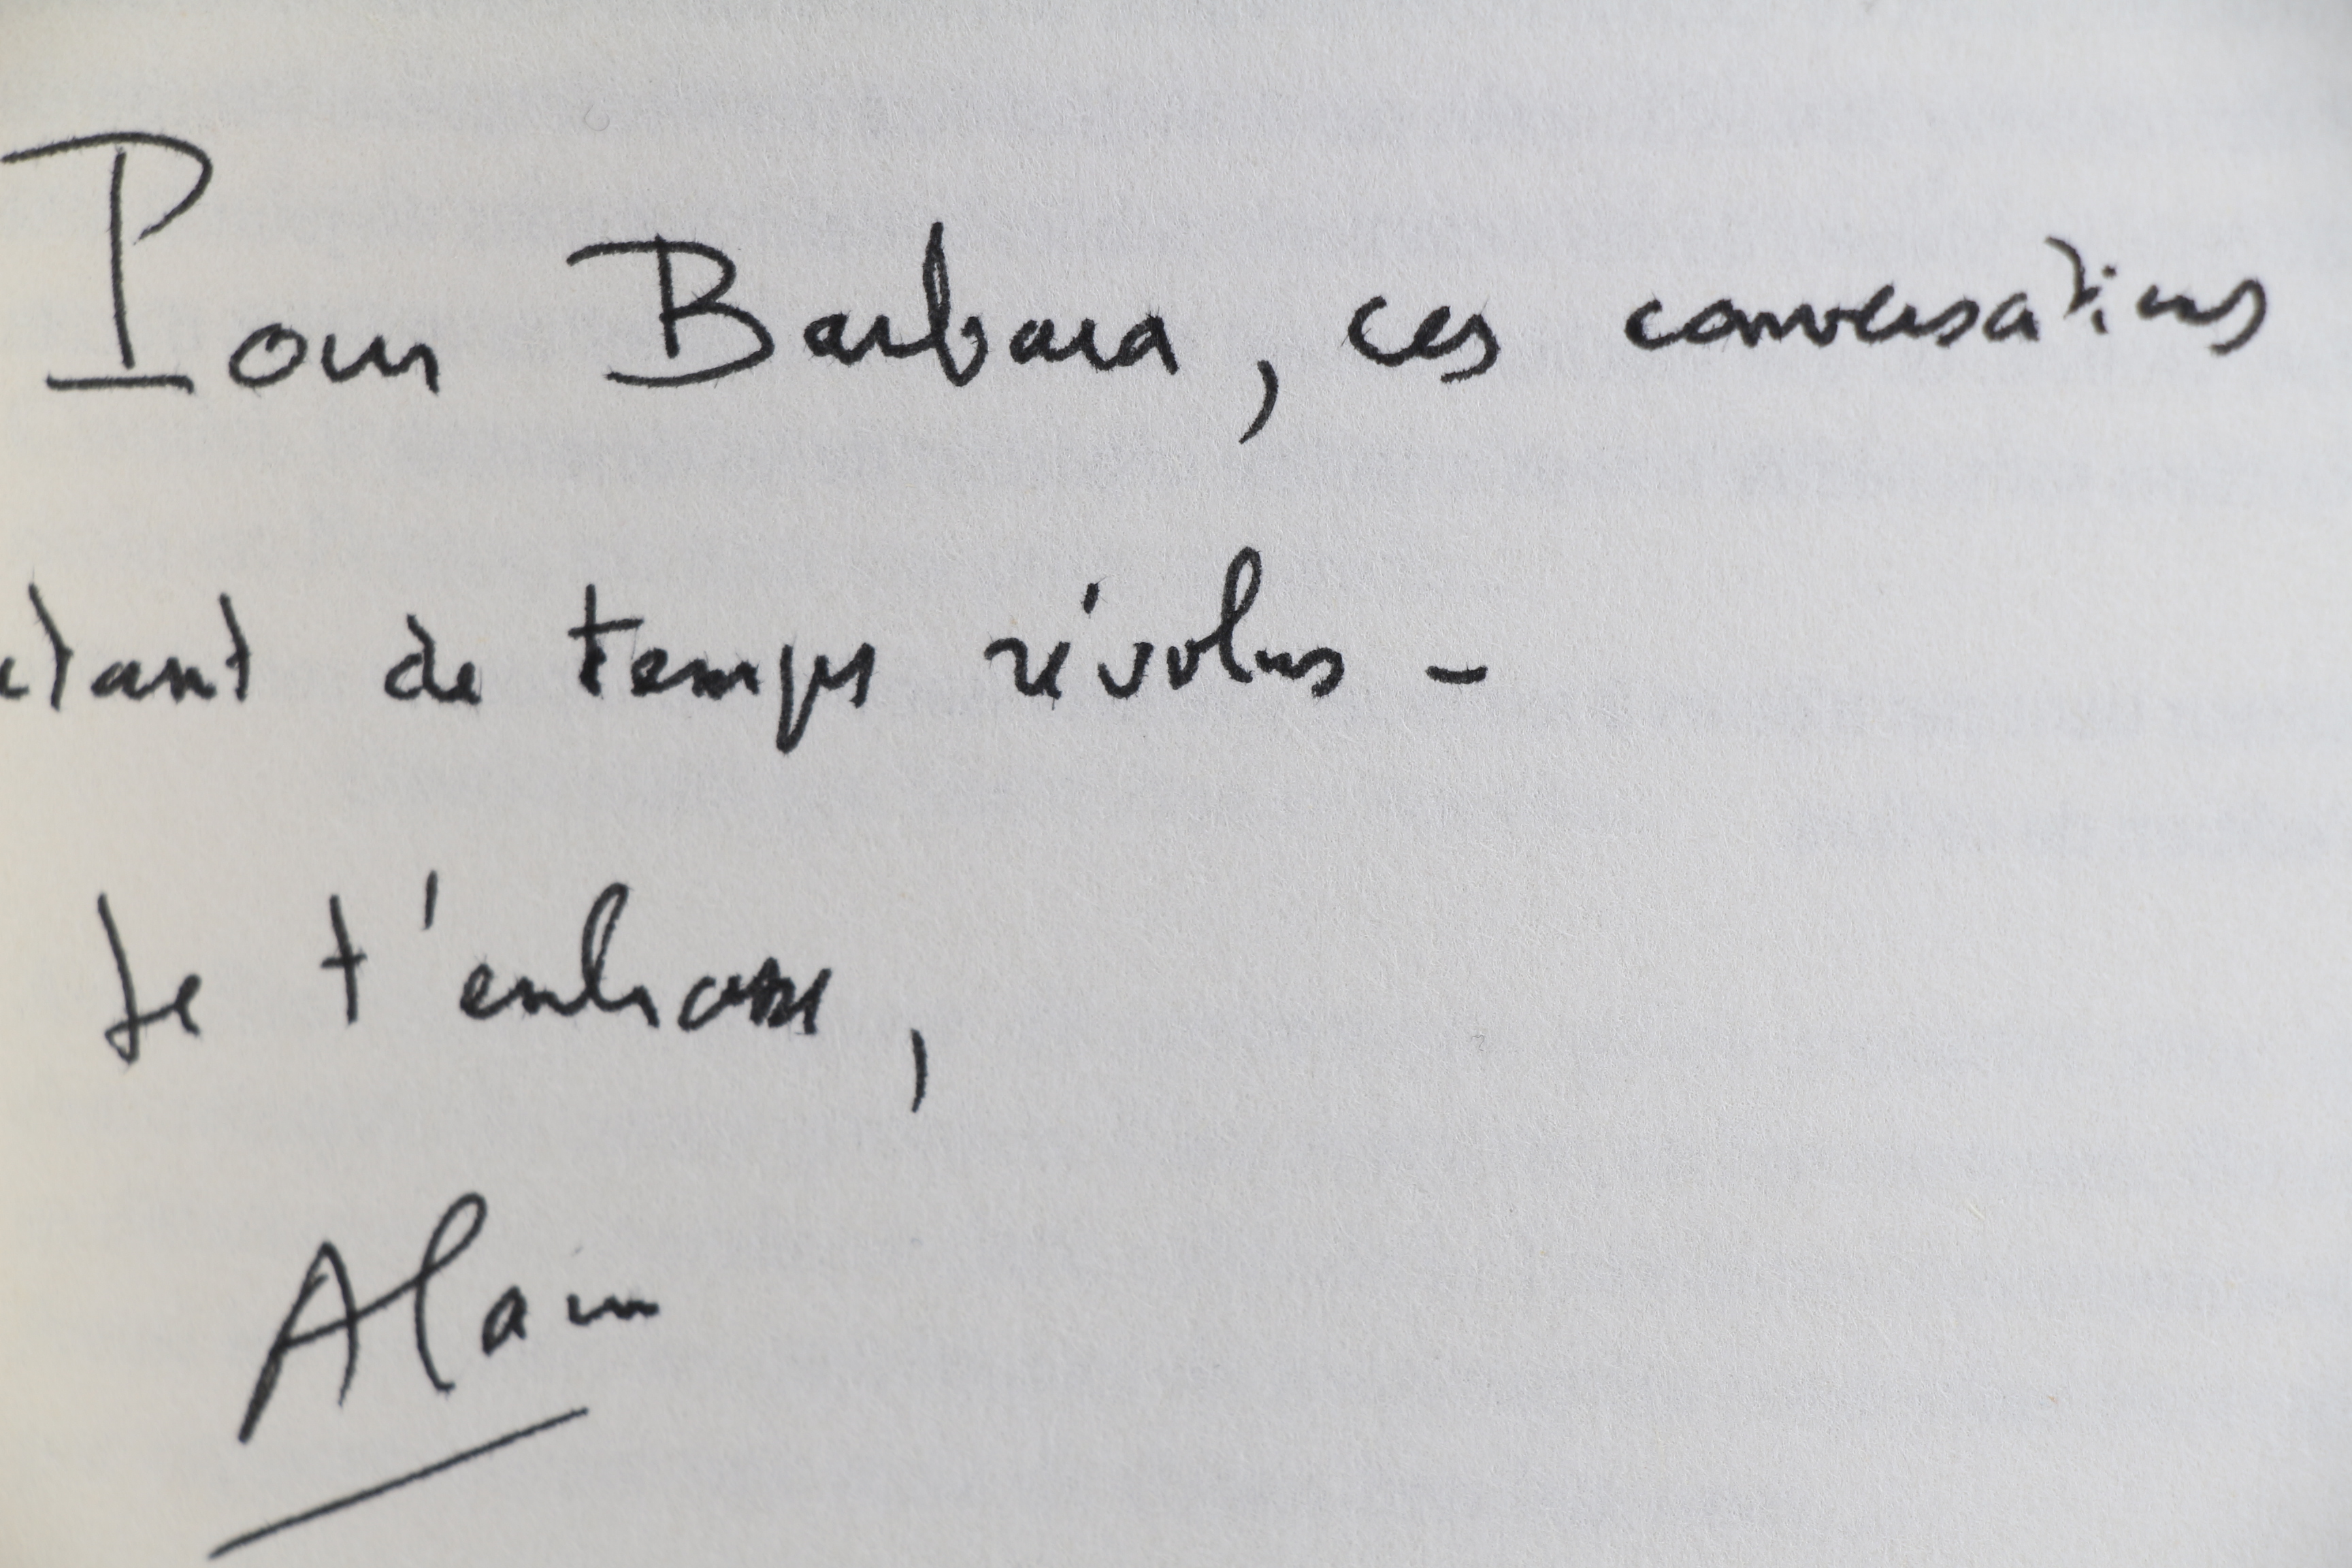 Pour Barbara, ces conversations
de temps révolus -
Je t'embrasse,
Alain